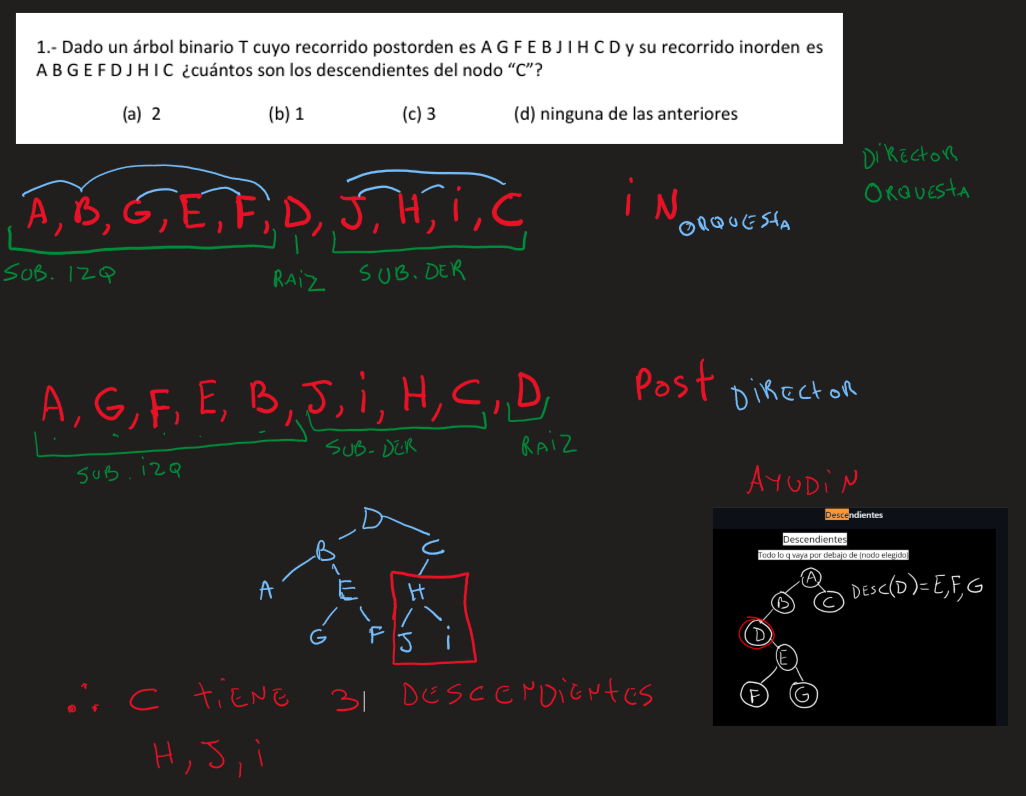 1.- Dado un árbol binario T cuyo recorrido postorden es A G F E B J I H C D y su recorrido inorden es
A B G E F D J H I C ¿cuántos son los descendientes del nodo “C”?
(a) 2 (b) 1 (c) 3 (d) ninguna de las anteriores
DiRECtOR
ORQUEStA
A, B, G, E, F, D, J, H, i, C iN ORQUEStA
SUB. IZQ RAiZ SUB. DER
A, G, F, E, B, J, i, H, C, D, Post DiRECtOR
SUB. iZQ SUB. DER RAiZ
AYUDiN
Descendientes
Descendientes
Todo lo q vaya por debajo de (nodo elegido)
A
B C DESC(D)=E,F,G
D
E
F G
D
B C
A E H
G F J i
∴ C tiENE 3 DESCENDiENtES
H, J, i